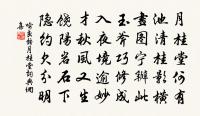 月桂堂何有
池清桂影橫
畫圖寧辦此
玉斧巧修成
入夜境逾妙
才秋風又生
饒陽名石下
欠分明
喻良能月桂堂詞典網